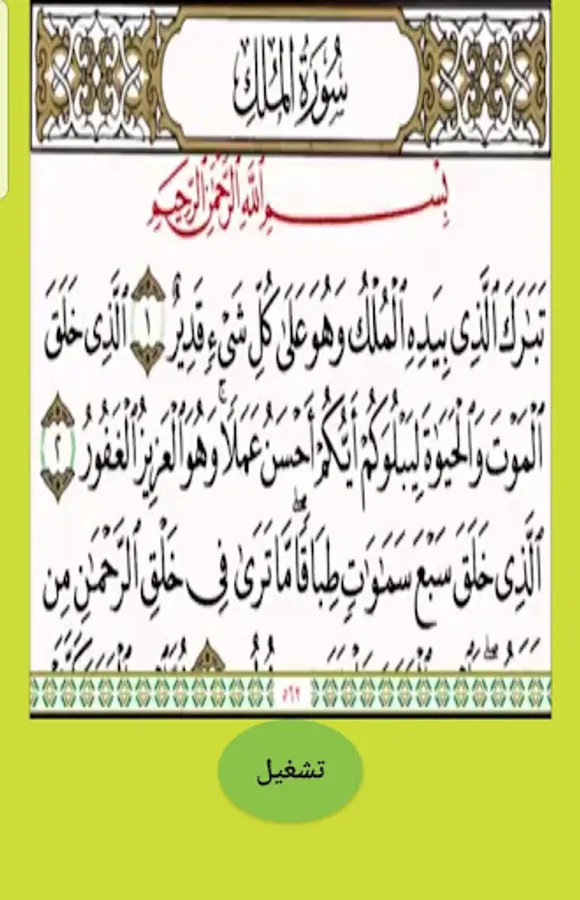 سُورَةُ الْمُلْكِ
بِسْمِ ٱللَّهِ ٱلرَّحْمَٰنِ ٱلرَّحِيمِ
تَبَٰرَكَ ٱلَّذِى بِيَدِهِ ٱلْمُلْكُ وَهُوَ عَلَىٰ كُلِّ شَىْءٍ قَدِيرٌ ١ ٱلَّذِى خَلَقَ
ٱلْمَوْتَ وَٱلْحَيَوٰةَ لِيَبْلُوَكُمْ أَيُّكُمْ أَحْسَنُ عَمَلًا ۚ وَهُوَ ٱلْعَزِيزُ ٱلْغَفُورُ ٢
ٱلَّذِى خَلَقَ سَبْعَ سَمَٰوَٰتٍ طِبَاقًا ۖ مَّا تَرَىٰ فِى خَلْقِ ٱلرَّحْمَٰنِ مِن
٥٦٢
تشغيل